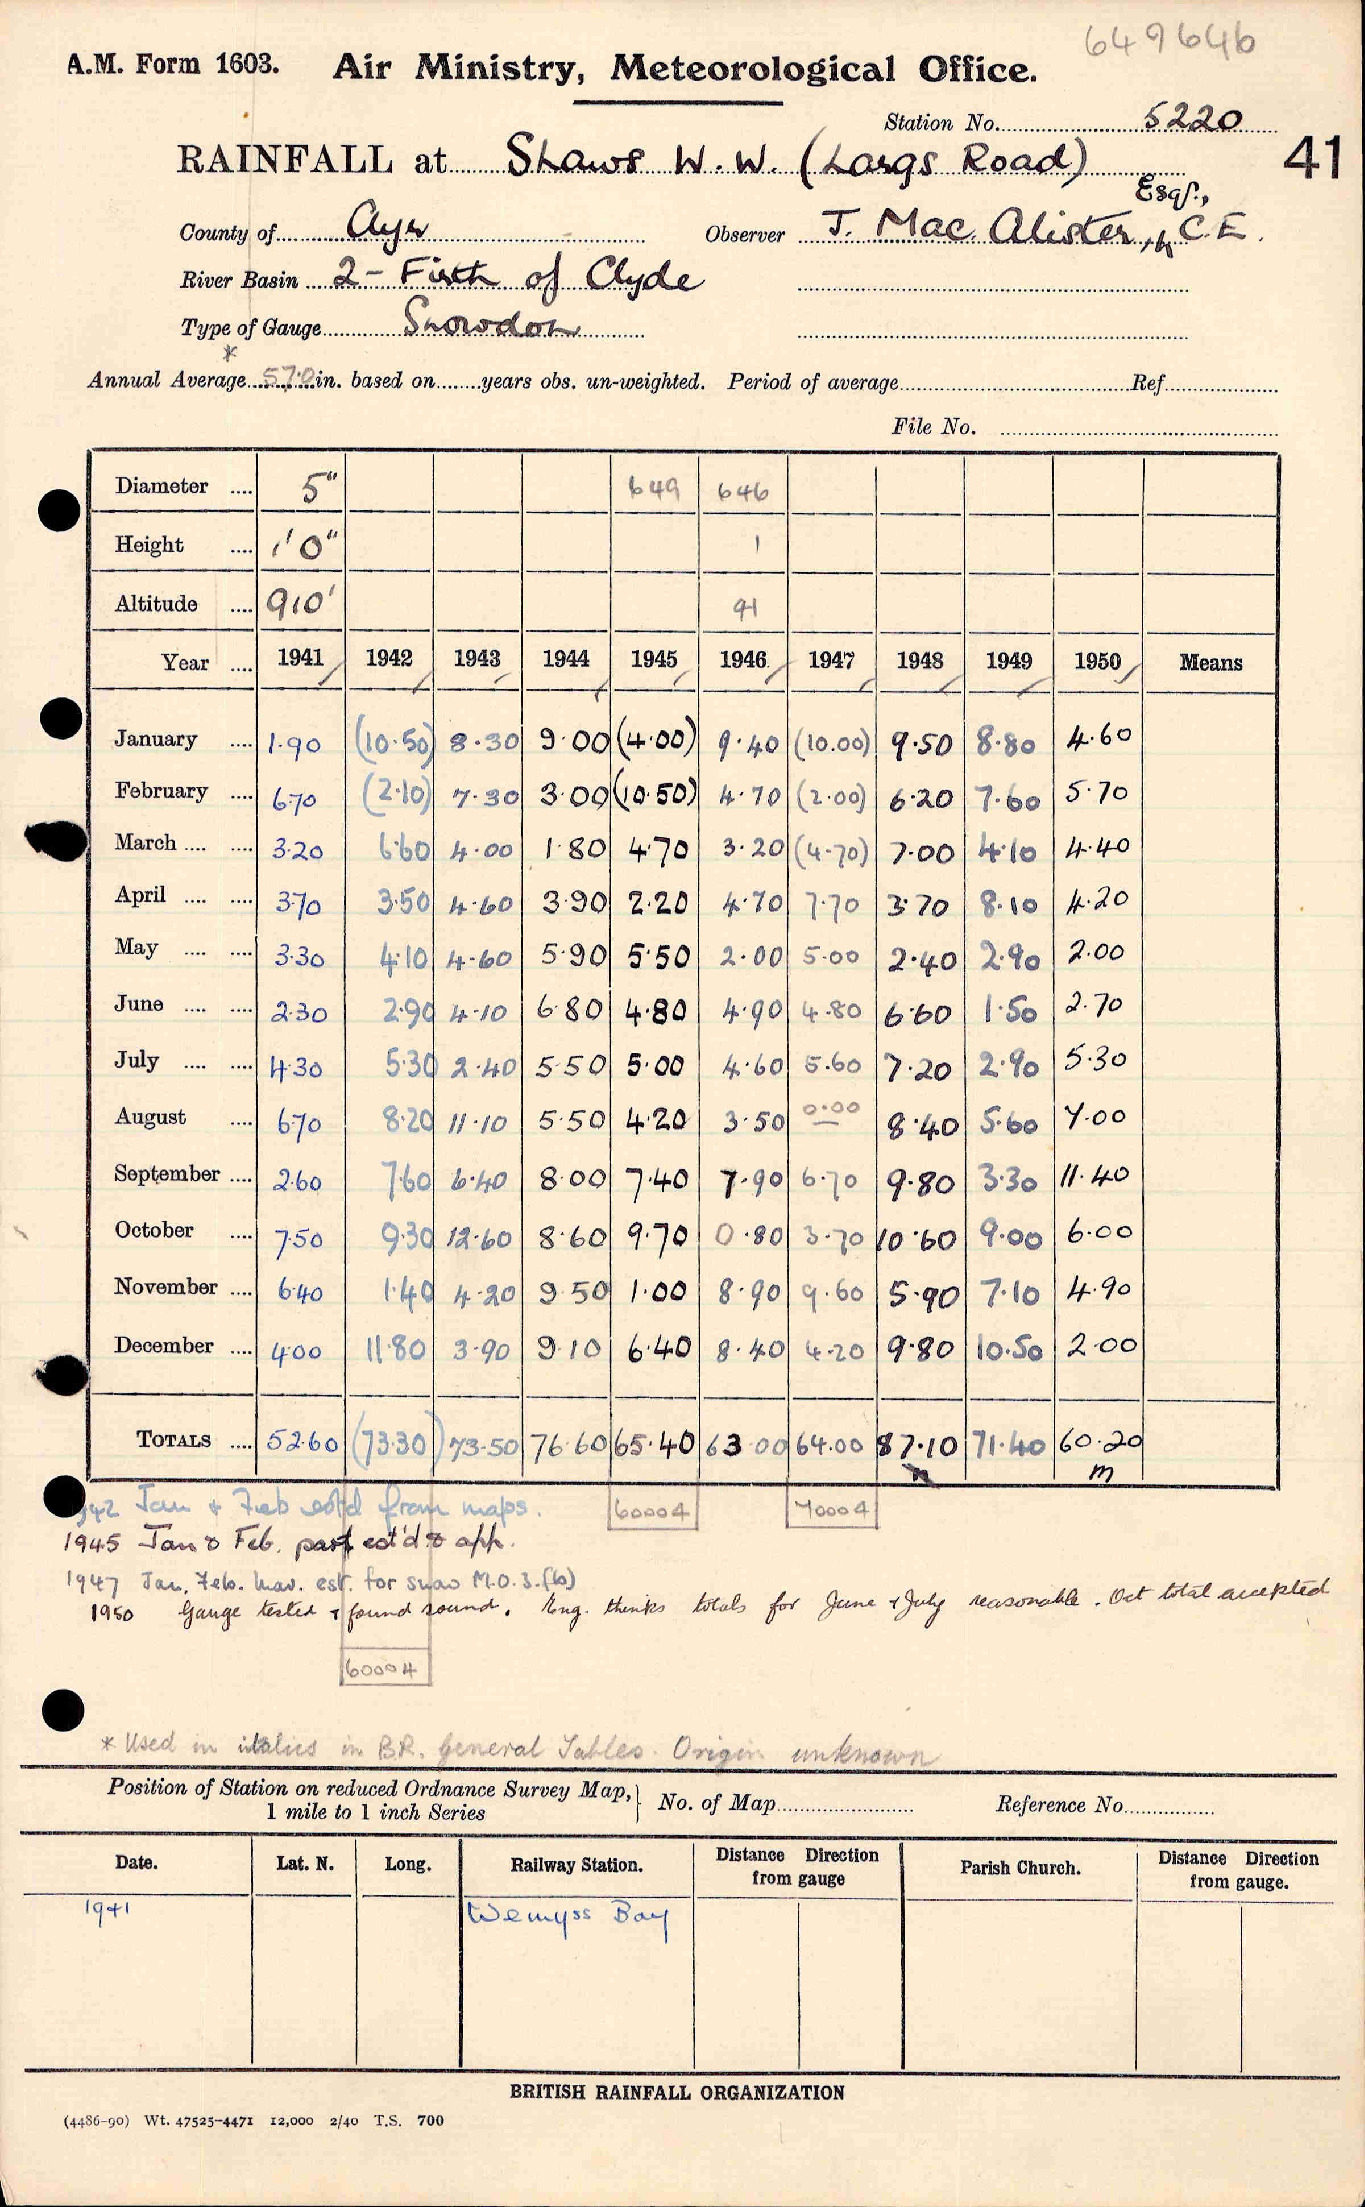 649646
A.M. Form 1603. Air Ministry, Meteorological Office.
Station No. 5220
RAINFALL at Shaws W.W. (Largs Road) 41
Esqr.,
County of Ayr Observer J. Mac Alister, C.E.
River Basin 2 - Firth of Clyde
Type of Gauge Snowdon
*
Annual Average 57.0 in. based on years obs. un-weighted. Period of average Ref.
File No.
Diameter 5" 649 646
Height 1' 0" 1
Altitude 910' 91
Year 1941 1942 1943 1944 1945 1946 1947 1948 1949 1950 Means
January 1.90 (10.50) 8.30 9.00 (4.00) 9.40 (10.00) 9.50 8.80 4.60
February 6.70 (2.10) 7.30 3.00 (10.50) 4.70 (2.00) 6.20 7.60 5.70
March 3.20 6.60 4.00 1.80 4.70 3.20 (4.70) 7.00 4.10 4.40
April 3.70 3.50 4.60 3.90 2.20 4.70 7.70 3.70 8.10 4.20
May 3.30 4.10 4.60 5.90 5.50 2.00 5.00 2.40 2.90 2.00
June 2.30 2.90 4.10 6.80 4.80 4.90 4.80 6.60 1.50 2.70
July 4.30 5.30 2.40 5.50 5.00 4.60 5.60 7.20 2.90 5.30
August 6.70 8.20 11.10 5.50 4.20 3.50 0.00 8.40 5.60 7.00
September 2.60 7.60 6.40 8.00 7.40 7.90 6.70 9.80 3.30 11.40
October 7.50 9.30 12.60 8.60 9.70 0.80 3.70 10.60 9.00 6.00
November 6.40 1.40 4.20 9.50 1.00 8.90 9.60 5.90 7.10 4.90
December 4.00 11.80 3.90 9.10 6.40 8.40 4.20 9.80 10.50 2.00
TOTALS 52.60 (73.30) 73.50 76.60 65.40 63.00 64.00 87.10 71.40 60.20
m
1942 Jan & Feb est'd from maps. 60004 70004
1945 Jan & Feb. part est'd & app.
1947 Jan, Feb. Mar. est. for snow M.O.3.(b)
1950 Gauge tested & found sound. Eng. thinks totals for June & July reasonable. Oct total accepted
60004
* Used in italics in B.R. General Tables. Origin unknown
Position of Station on reduced Ordnance Survey Map, 1 mile to 1 inch Series No. of Map Reference No.
Date. Lat. N. Long. Railway Station. Distance Direction from gauge Parish Church. Distance Direction from gauge.
1941 Wemyss Bay
BRITISH RAINFALL ORGANIZATION
(4486-90) Wt. 47525-4471 12,000 2/40 T.S. 700